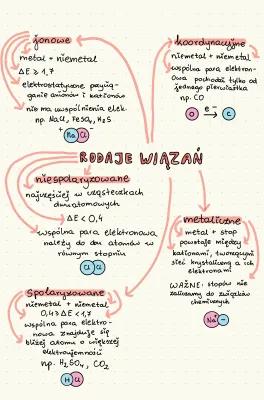 jonowe
metal + niemetal
ΔE ≥ 1,7
elektrostatyczne przycią-
ganie anionów i kationów
nie ma uwspólnienia elek.
np. NaCl, FeSO₄, H₂S
+ -
Na Cl
koordynacyjne
niemetal + niemetal
wspólna para elektron-
owa pochodzi tylko od
jednego pierwiastka
np. CO
e⁻
O → C
RODZAJE WIĄZAŃ
niespolaryzowane
najczęściej w cząsteczkach
dwuatomowych
ΔE < 0,4
wspólna para elektronowa
należy do dwu atomów w
równym stopniu
Cl Cl
metaliczne
metal + stop
powstaje między
kationami, tworzącymi
sieć krystaliczną a ich
elektronami
WAŻNE: stopów nie
zaliczamy do związków
chemicznych
Na⁺ -
Spolaryzowane
niemetal + niemetal
0,4 ≥ ΔE < 1,7
wspólna para elektro-
nowa znajduje się
bliżej atomu o większej
elektroujemności
np. H₂SO₄, CO₂
H Cl